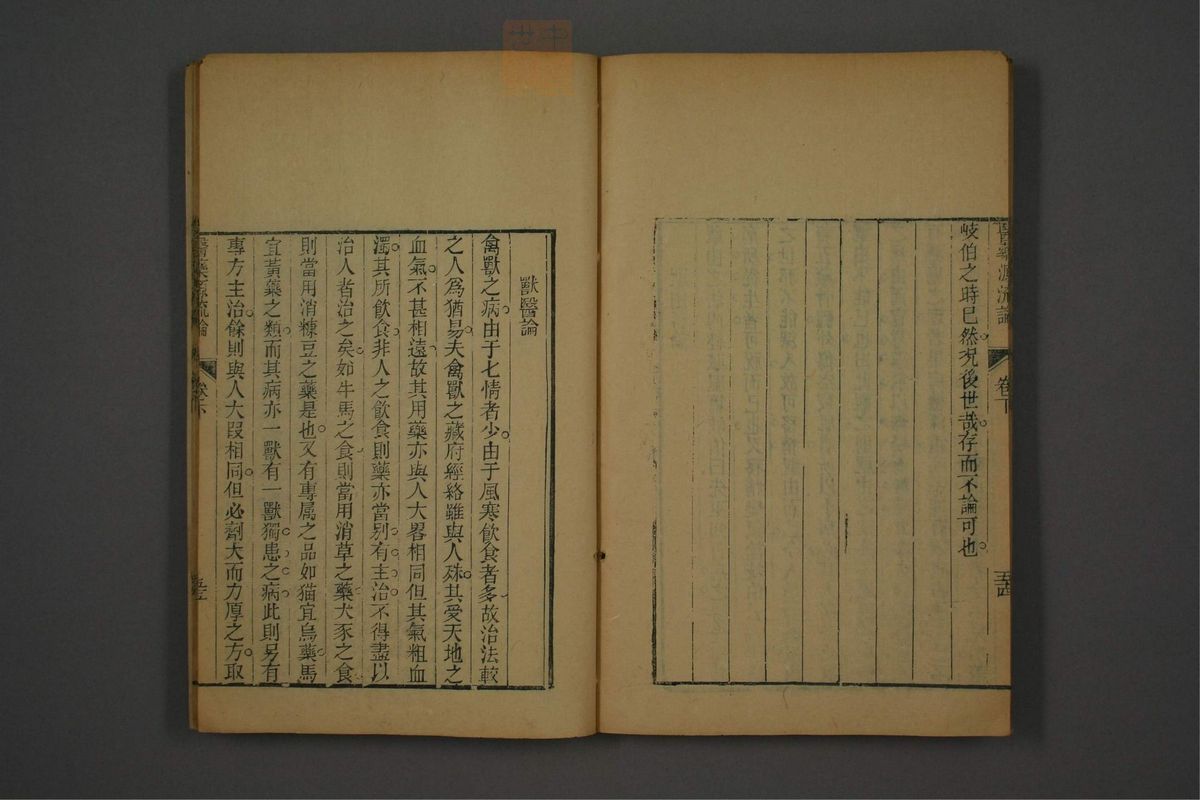 醫學源流論
卷下
岐伯之時已然况後世哉存而不論可也
獸醫論
禽獸之病由于七情者少由于風寒飲食者多故治法較
之人爲猶易夫禽獸之藏府經絡雖與人殊其受天地之
血氣不甚相遠故其用藥亦與人大畧相同但其氣粗血
濁其所飲食非人之飲食則藥亦當别有主治不得盡以
治人者治之矣如牛馬之食則當用消草之藥犬豕之食
則當用消糠豆之藥是也又有專属之品如猫宜烏藥馬
宜黃藥之類而其病亦一獸有一獸獨患之病此則另有
專方主治餘則與人大段相同但必劑大而力厚之方取
卷下